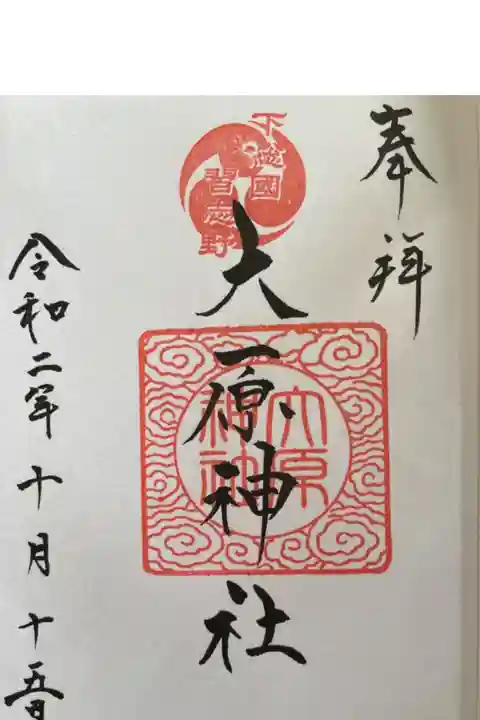 奉拝
下總國
習志野
大原神社
大原
神社
令和二年十月十五日